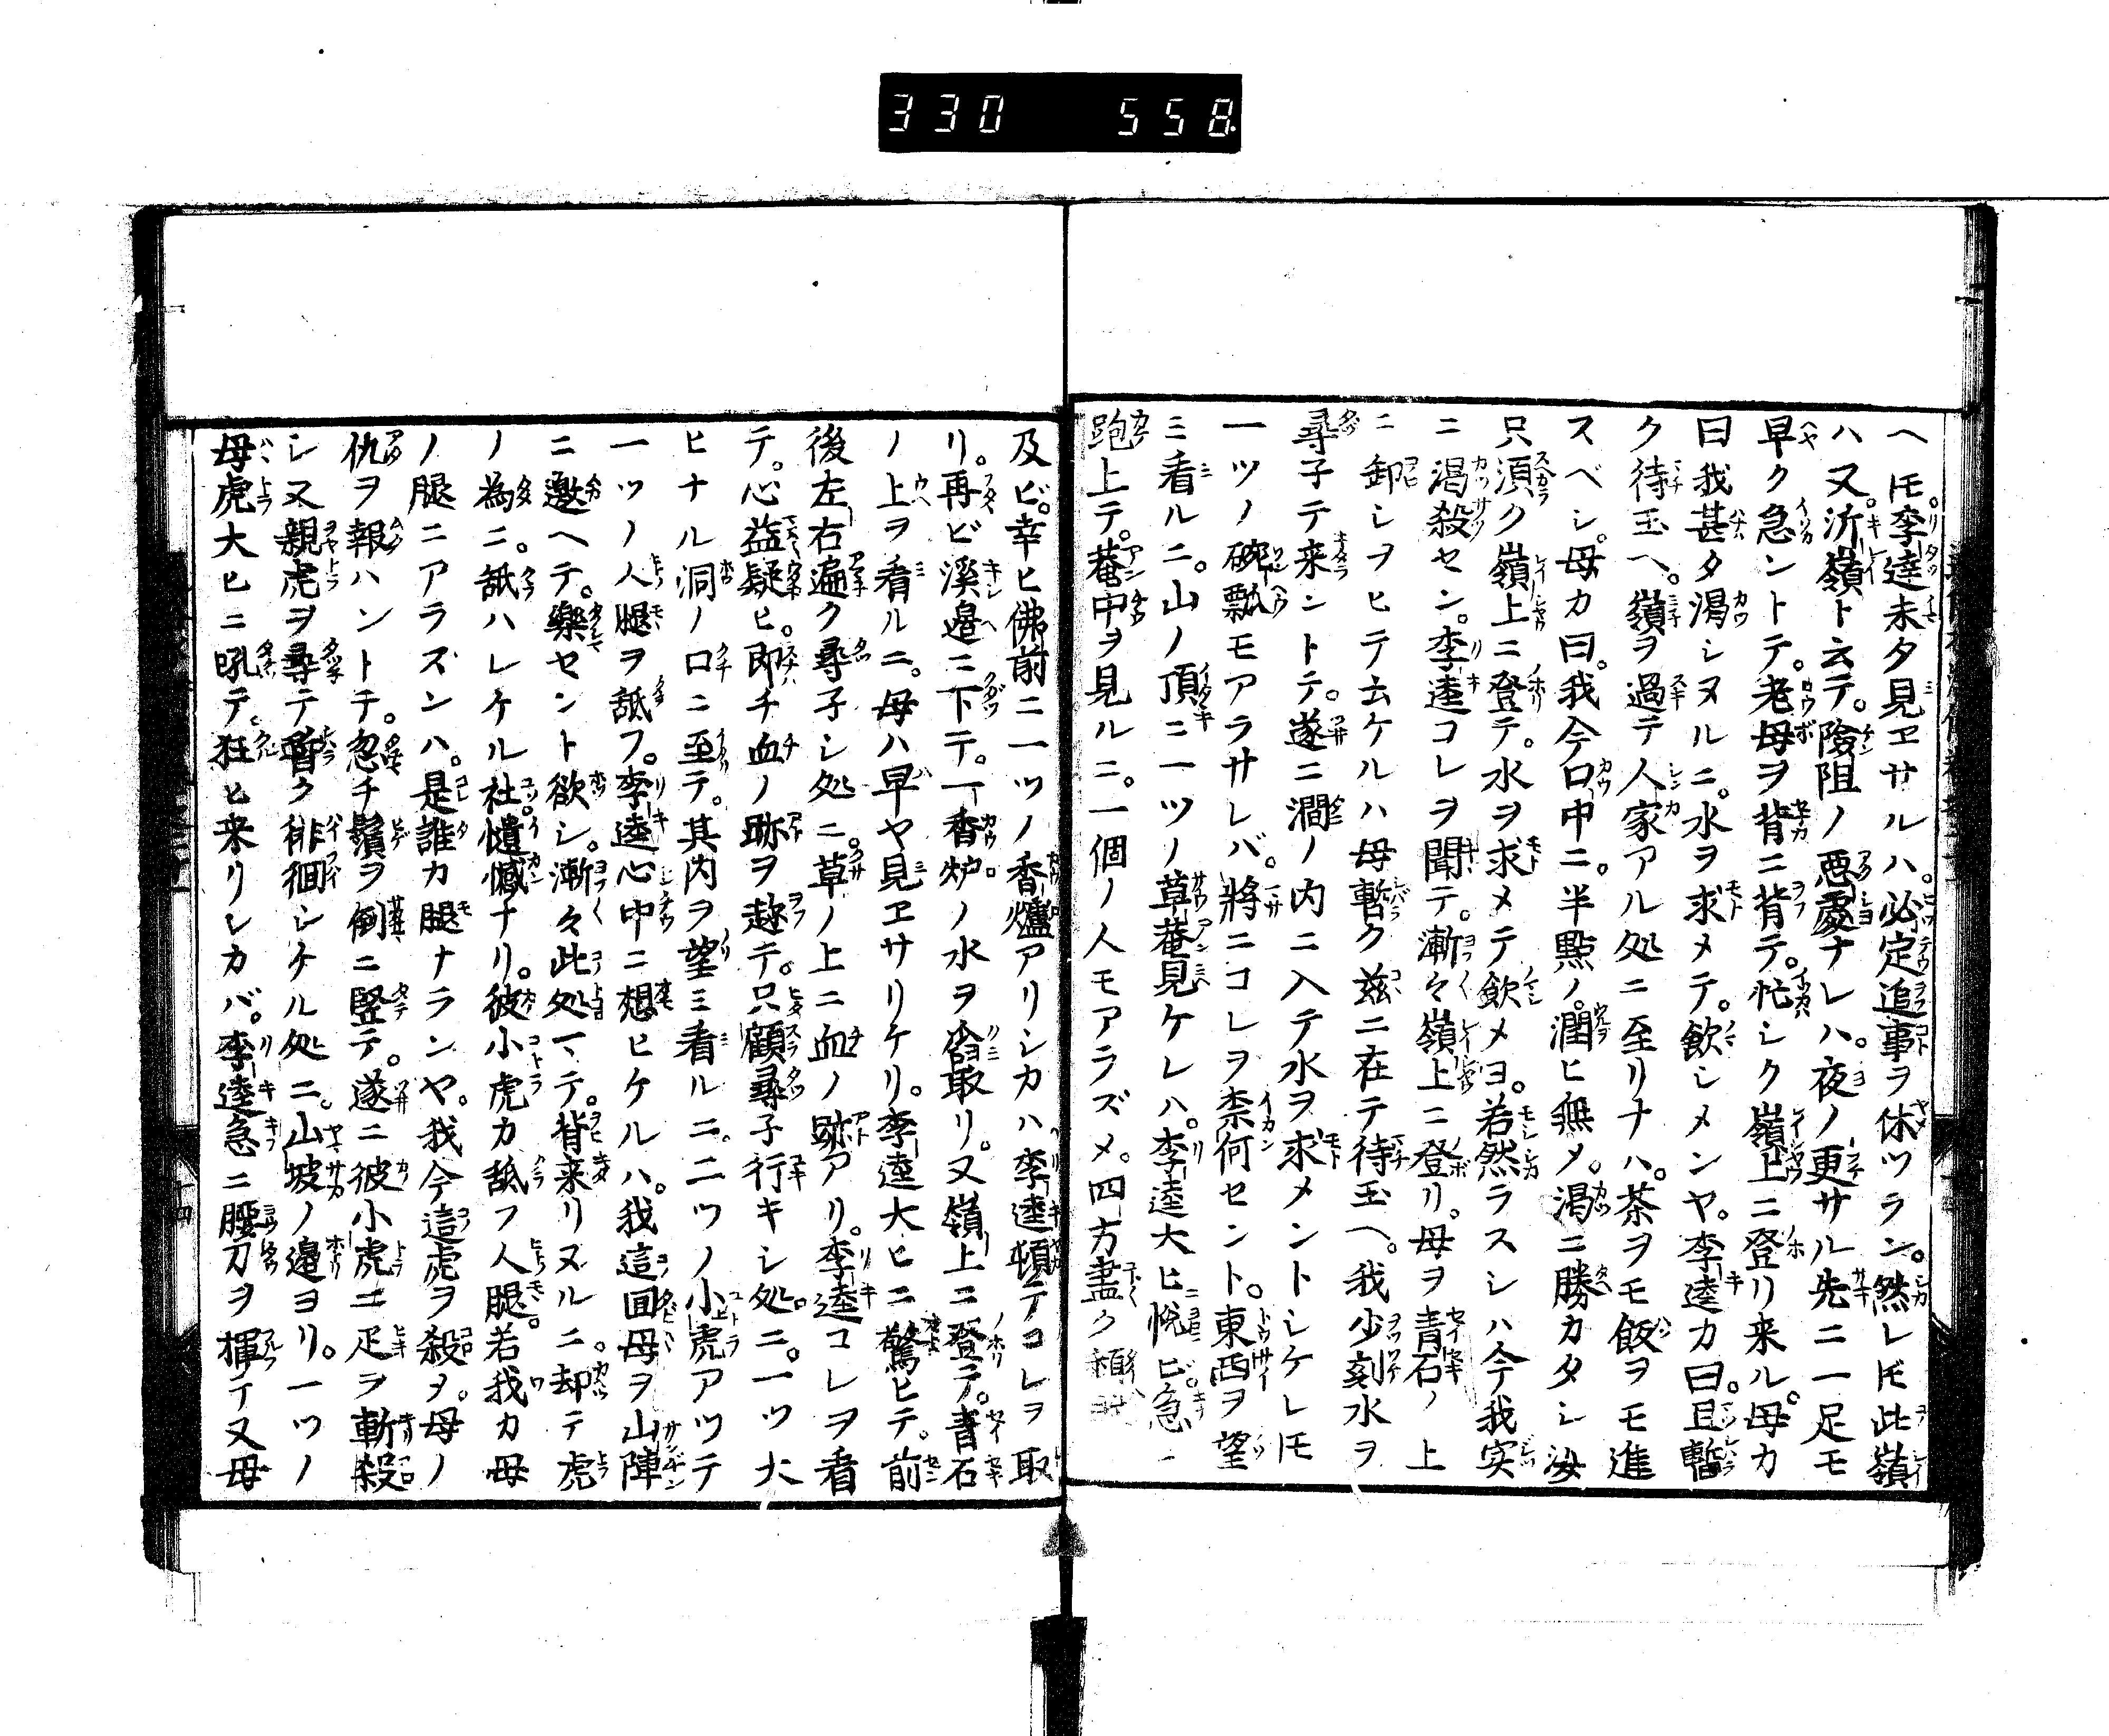 330 558
ヘ𪜈。李逵未タ見ヱサルハ。必定追事ヲ休ツラン。然レ𪜈此嶺
ハ又。沂嶺ト云テ。險阻ノ惡處ナレハ。夜ノ更サル先ニ一足モ
早ク急ントテ。老母ヲ背ニ背テ。忙シク嶺上ニ登リ来ル。母カ
曰我甚タ渇シヌルニ。水ヲ求メテ。飲シメンヤ。李逵カ曰。且暫
ク待玉ヘ。嶺ヲ過テ人家アル処ニ至リナハ。茶ヲモ飯ヲモ進
スベシ。母カ曰。我今口中ニ。半點ノ。潤ヒ無メ。渇ニ勝カタシ汝
只須ク嶺上ニ登テ。水ヲ求メテ飲メヨ。若然ラスシハ今我実
ニ渇殺セン。李逵コレヲ聞テ。漸々嶺上ニ登リ。母ヲ青石ノ上
ニ卸シヲヒテ云ケルハ母暫ク茲ニ在テ待玉ヘ。我少刻水ヲ
尋子テ来ントテ。遂ニ澗ノ内ニ入テ水ヲ求メントシケレ𪜈
一ツノ碗瓢モアラサレバ。將ニコレヲ柰何セント。東西ヲ望
ミ看ルニ。山ノ頂ニ一ツノ草菴見ケレハ。李逵大ヒニ悦ビ。急ニ
跑上テ。菴中ヲ見ルニ。一個ノ人モアラズメ。四方盡ク
及ビ。幸ヒ佛前ニ一ツノ香爐アリシカハ李逵頓テコレヲ取
リ。再ビ溪邉ニ下テ。一香炉ノ水ヲ舀取リ。又嶺上ニ登テ。青石
ノ上ヲ看ルニ。母ハ早ヤ見ヱサリケリ。李逵大ヒニ驚ヒテ。前
後左右遍ク尋子シ処ニ。草ノ上ニ血ノ跡アリ。李逵コレヲ看
テ。心益疑ヒ。即チ血ノ跡ヲ趂テ。只顧尋子行キシ処ニ。一ツ大
ヒナル洞ノ口ニ至テ。其内ヲ望ミ看ルニ。二ツノ小虎アツテ
一ツノ人腿ヲ舐フ。李逵心中ニ想ヒケルハ。我這囬母ヲ山陣
ニ邀ヘテ。樂セント欲シ。漸々此処マテ。背来リヌルニ。却テ虎
ノ為ニ。舐ハレケル社。憾ナリ。彼小虎カ舐フ人腿。若我カ母
ノ腿ニアラズンハ。是誰カ腿ナランヤ。我今這虎ヲ殺メ。母ノ
仇ヲ報ハントテ。忽チ鬚ヲ倒ニ竪テ。遂ニ彼小虎二疋ヲ斬殺
シ又親虎ヲ尋テ暫ク徘徊シケル処ニ。山坡ノ邉ヨリ。一ツノ
母虎大ヒニ吼テ。狂ヒ来リシカバ。李逵急ニ腰刀ヲ揮テ又母